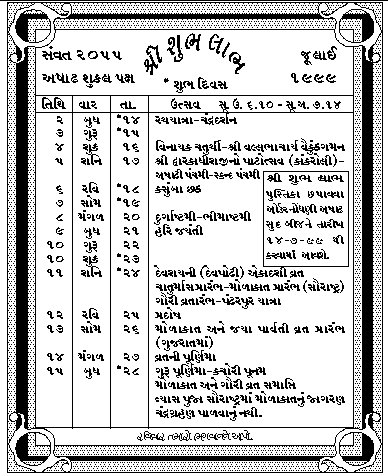 શ્રી શુભ લાભ
સંવત ૨૦૫૫ જૂલાઈ
અષાઢ શુકલ પક્ષ * શુભ દિવસ ૧૯૯૯
તિથિ વાર તા. ઉત્સવ સૂ.ઉ. ૬.૧૦ - સૂ.અ. ૭.૧૪
૨ બુધ *૧૪ રથયાત્રા-ચંદ્રદર્શન
૩ ગુરૂ *૧૫
૪ શુક્ર ૧૬ વિનાયક ચતુર્થી-શ્રી વલ્લભાચાર્ય વૈકુંઠગમન
૫ શનિ ૧૭ શ્રી દ્વારકાધીશજીનો પાટોત્સવ (કાંકરોલી)-
અષાઢી પંચમી-સ્કન્દ પંચમી
૬ રવિ *૧૮ કસુંબા છઠ
૭ સોમ *૧૯
૮ મંગળ ૨૦ દુર્ગાષ્ટમી-ભીમાષ્ટમી
૯ બુધ ૨૧ હરિ જયંતી
૧૦ ગુરૂ ૨૨
૧૦ શુક્ર *૨૩
૧૧ શનિ *૨૪ દેવશયની (દેવપોઢી) એકાદશી વ્રત
ચાતુર્માસપ્રારંભ-મોળાકાત પ્રારંભ (સૌરાષ્ટ્ર)
ગૌરી વ્રતારંભ-પંઢરપુર યાત્રા
૧૨ રવિ ૨૫ પ્રદોષ
૧૩ સોમ ૨૬ મોળાકાત અને જયા પાર્વતી વ્રત પ્રારંભ
(ગુજરાતમાં)
૧૪ મંગળ ૨૭ વ્રતની પૂર્ણિમા
૧૫ બુધ *૨૮ ગુરૂ પૂર્ણિમા-કચોરી પૂનમ
મોળાકાત અને ગૌરી વ્રત સમાપ્તિ
વ્યાસ પૂજા સૌરાષ્ટ્રમાં મોળાકાતનું જાગરણ
ચંદ્રગ્રહણ પાળવાનું નથી.
શ્રી શુભ લાભ
પુસ્તિકા છપાવવા
ઓર્ડર-નોંધણી અષાઢ
સુદ બીજને તારીખ
૧૪-૭-૯૯ થી
કરવામાં આવશે.